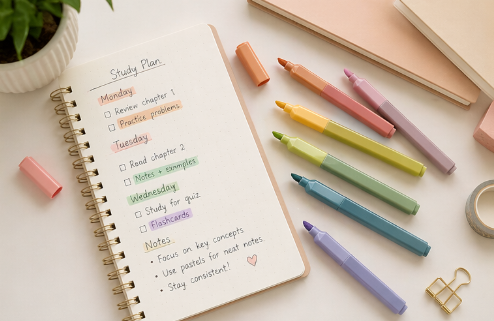 Study Plan
Monday
Review chapter 1
Practice problems
Tuesday
Read chapter 2
Notes + examples
Wednesday
Study for quiz
Flashcards
Notes
• Focus on key concepts
• Use pastels for neat notes
• Stay consistent!